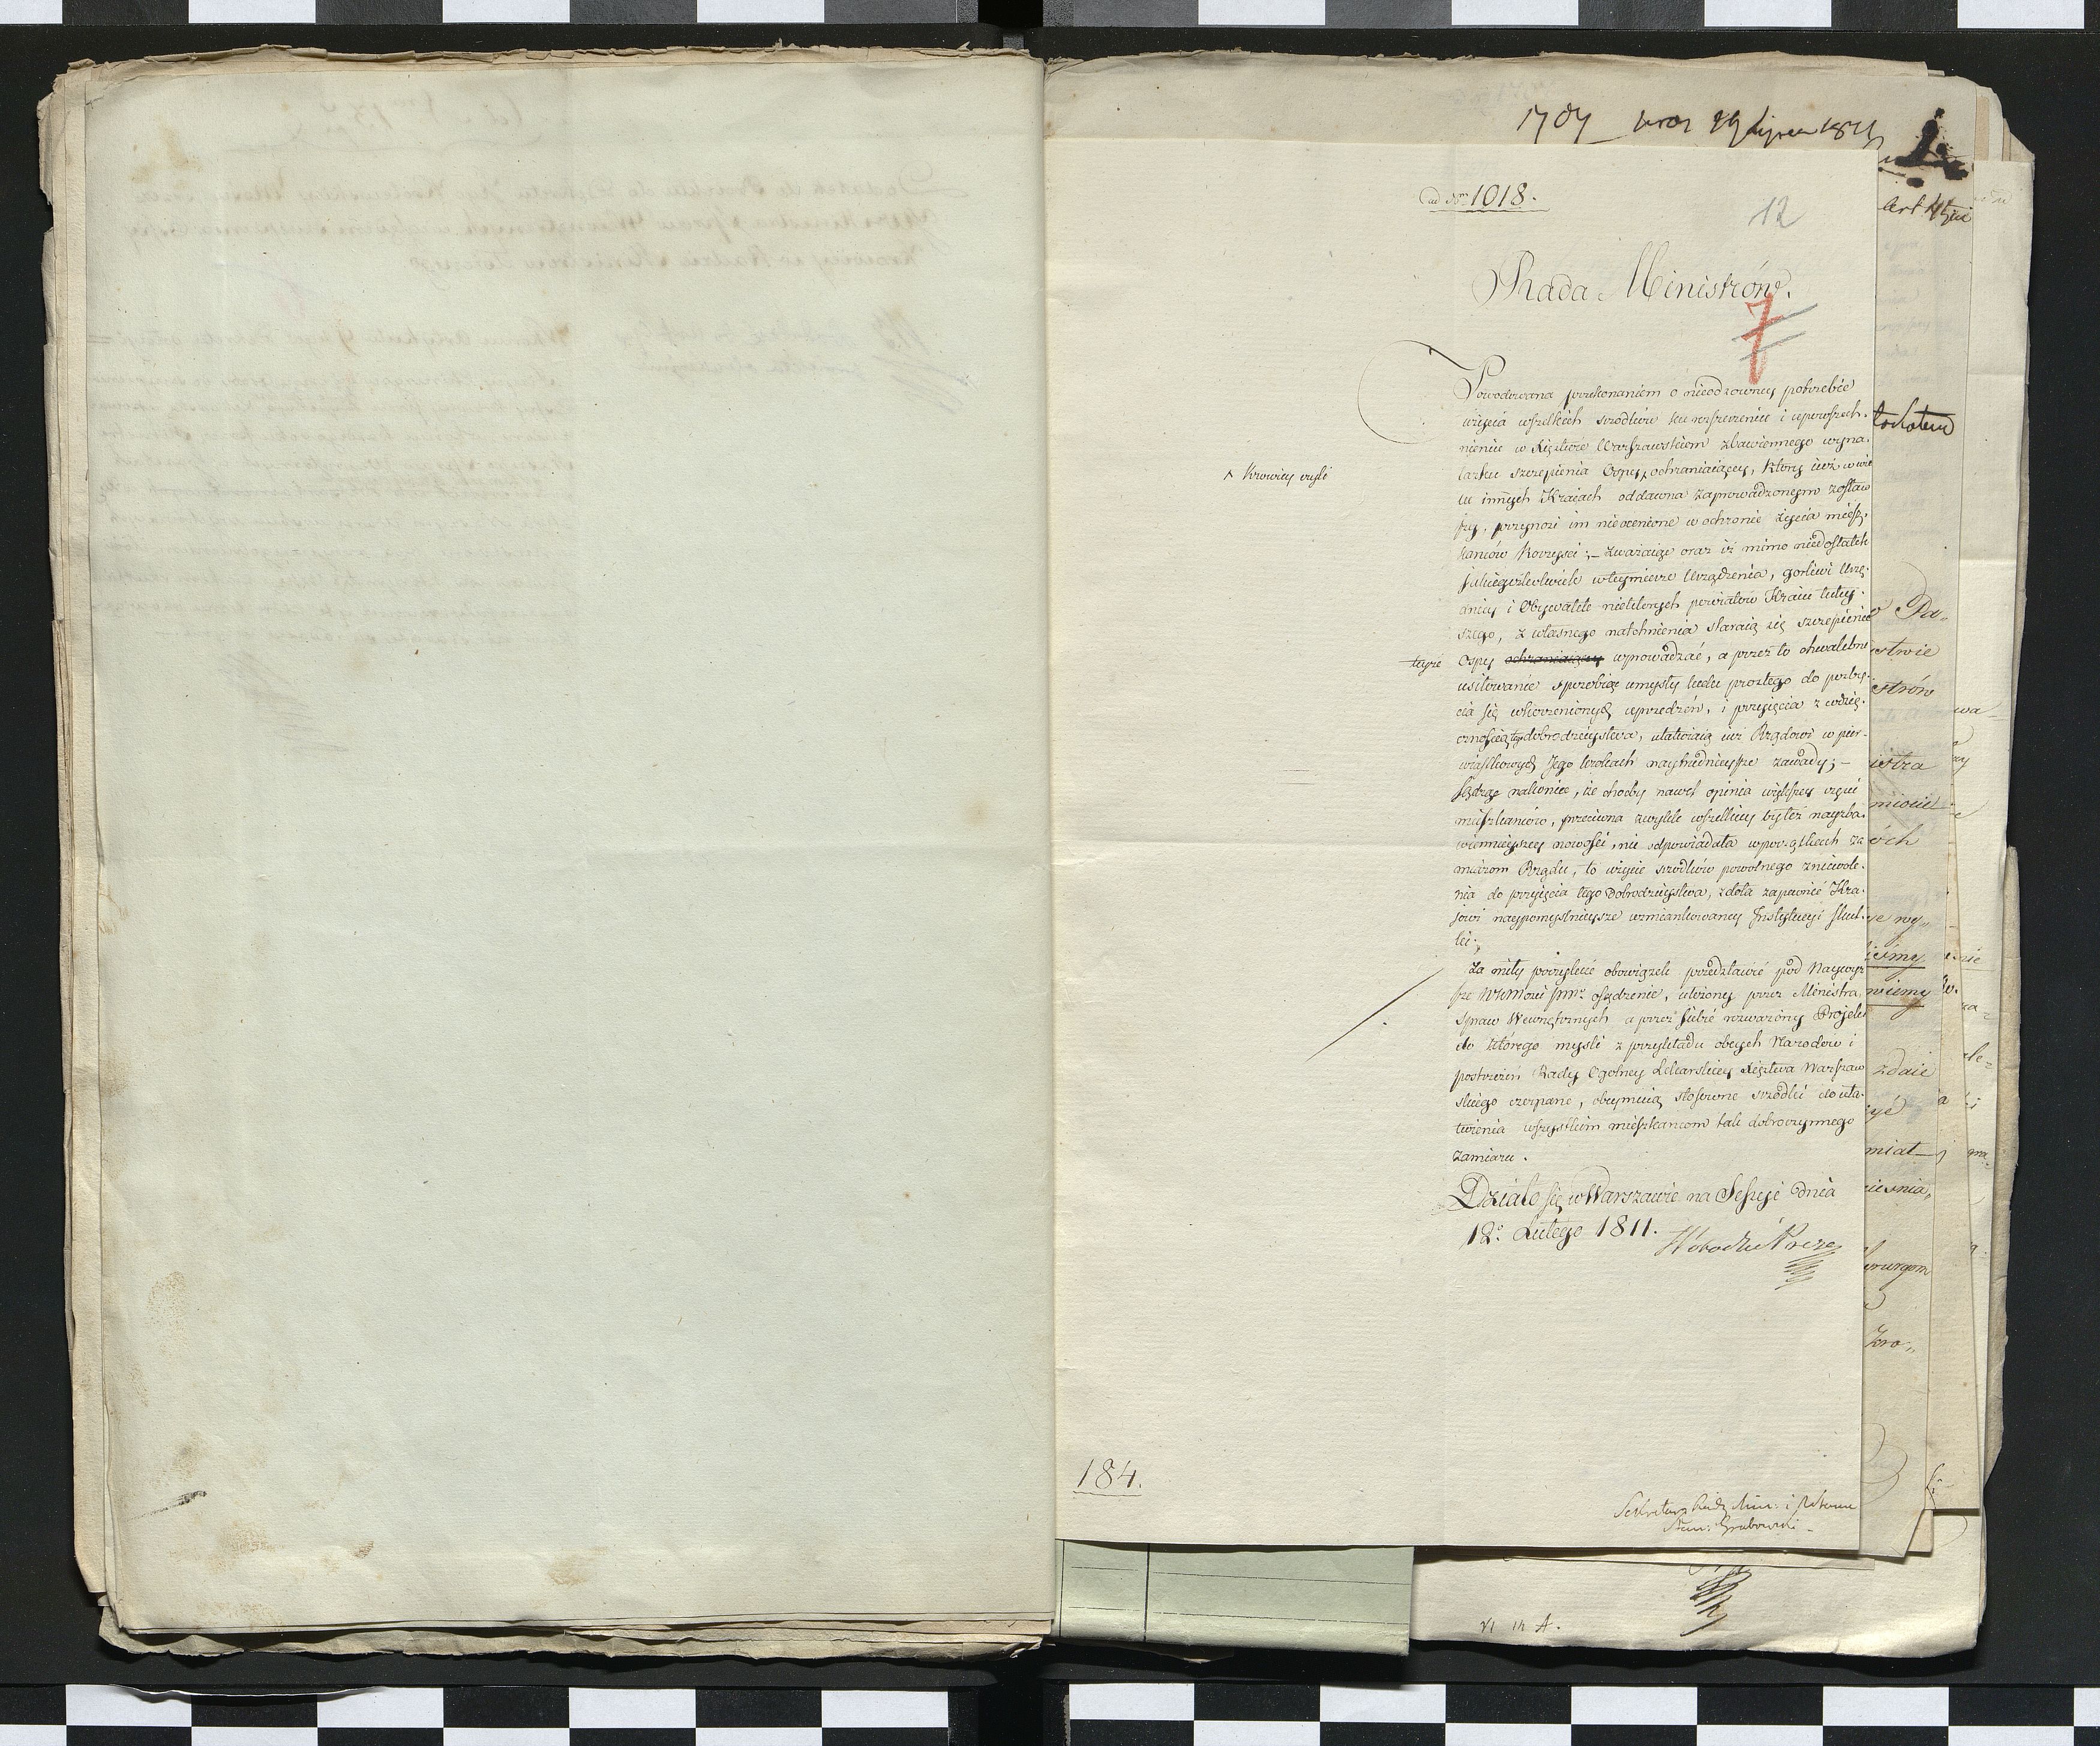 ad Nrm 1018.
12
Rada Ministrów.
7
Powodowana przekonaniem o nieodzowney potrzebie
użycia wszelkich srzodków ku rozszerzeniu i upowszech-
nieniu w Xięztwie Warszawskiem zbawiennego wyna-
lazku szczepienia Ospy ochraniaiącey, który iuż w wie
^ Krowiey czyli
lu innych Kraiach oddawna zaprowadzonym zostaw
szy, przynosi im nieocenione w ochronie życia miesz-
kańców korzyści; – zważaiąc oraz iż mimo niedostatek
jakiegożkolwiek w tey mierze Urządzenia, gorliwi Urzę-
dnicy i Obywatele niektórych powiatów Kraiu tutey-
szego, z własnego natchnienia staraią się szczepienie
teyże Ospy ochraniaiącey wprowadzać, a przez to chwalebne
usiłowanie sposobiąc umysły ludu prostego do pozby-
cia się wkorzenionych uprzedzeń, i przyięcia z wdzię-
cznością tego dobrodzieystwa, ułatwiaią iuż Rządowi w pier-
wiastkowych Jego krokach naytrudnieysze zawady; –
Sądząc nakoniec, że choćby nawet opinia większey części
mieszkańców, przeciwna zwykle wszelkiey byłeż nayzba-
wiennieyszey nowości, nie odpowiadała w początkach za
miarom Rządu, to użycie srzodków powolnego zniewole-
nia do przyięcia tego Dobrodzieystwa, zdoła zapewnić Kra-
jowi naypomyślnieysze wzmiankowaney Instytucyi skut-
ki;
Za miły poczytuie obowiązek przedstawić pod Naywyż
sze WKMości Pna osądzenie, ułożony przez Ministra
Spraw Wewnętrznych a przez siebie rozważony Projekt
do którego myśli z przykładu obcych Narodów i
postrzeżeń Rady Ogólney Lekarskiey Xięztwa Warszaw
skiego czerpane, obeymuią stosowne srzodki do uła-
twienia wszystkim mieszkańcom tak dobroczynnego
zamiaru.
Działo się w Warszawie na Sessyi dnia
12o Lutego 1811.
184.
Sekretarz Rady Min: i
Stan: Grabowski